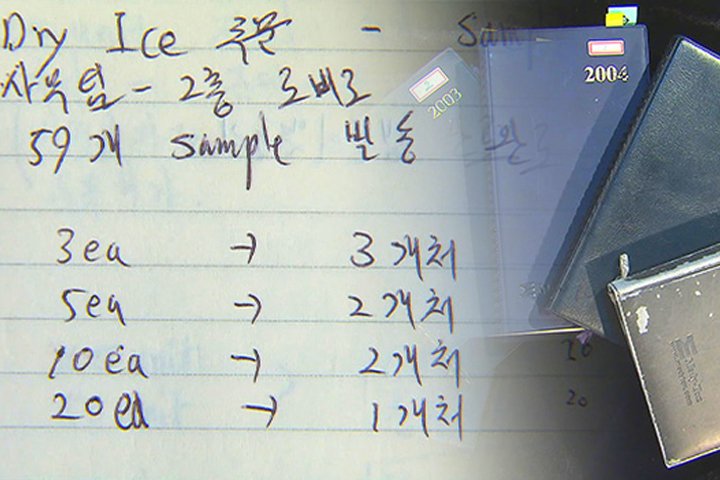 Dry Ice 주문 - Sam
사육팀 - 2층 로비로
59개 sample 발송
3ea → 3개처
5ea → 2개처
10ea → 2개처
20ea → 1개처
2003
2004
20
20